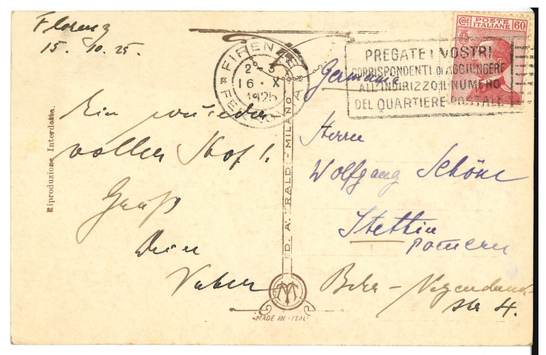 Florenz
15. 10. 25.
Ein
voller
Gruß
Dein
Vater
Riproduzione Interdetta.
FIRENZE
16 · X
1925
FERROVIA
PREGATE I VOSTRI
CORRISPONDENTI DI AGGIUNGERE
ALL'INDIRIZZO IL NUMERO
DEL QUARTIERE POSTALE
POSTE ITALIANE
60
Germania
Herrn
Wolfgang Schöne
Stettin
Pomern
str 4.
MILANO
MADE IN ITALY